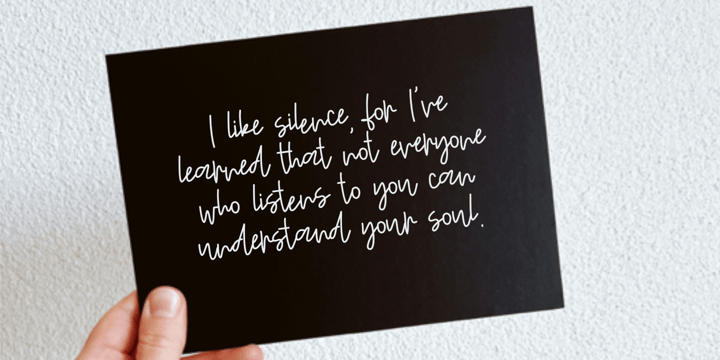 I like silence, for I've
learned that not everyone
who listens to you can
understand your soul.